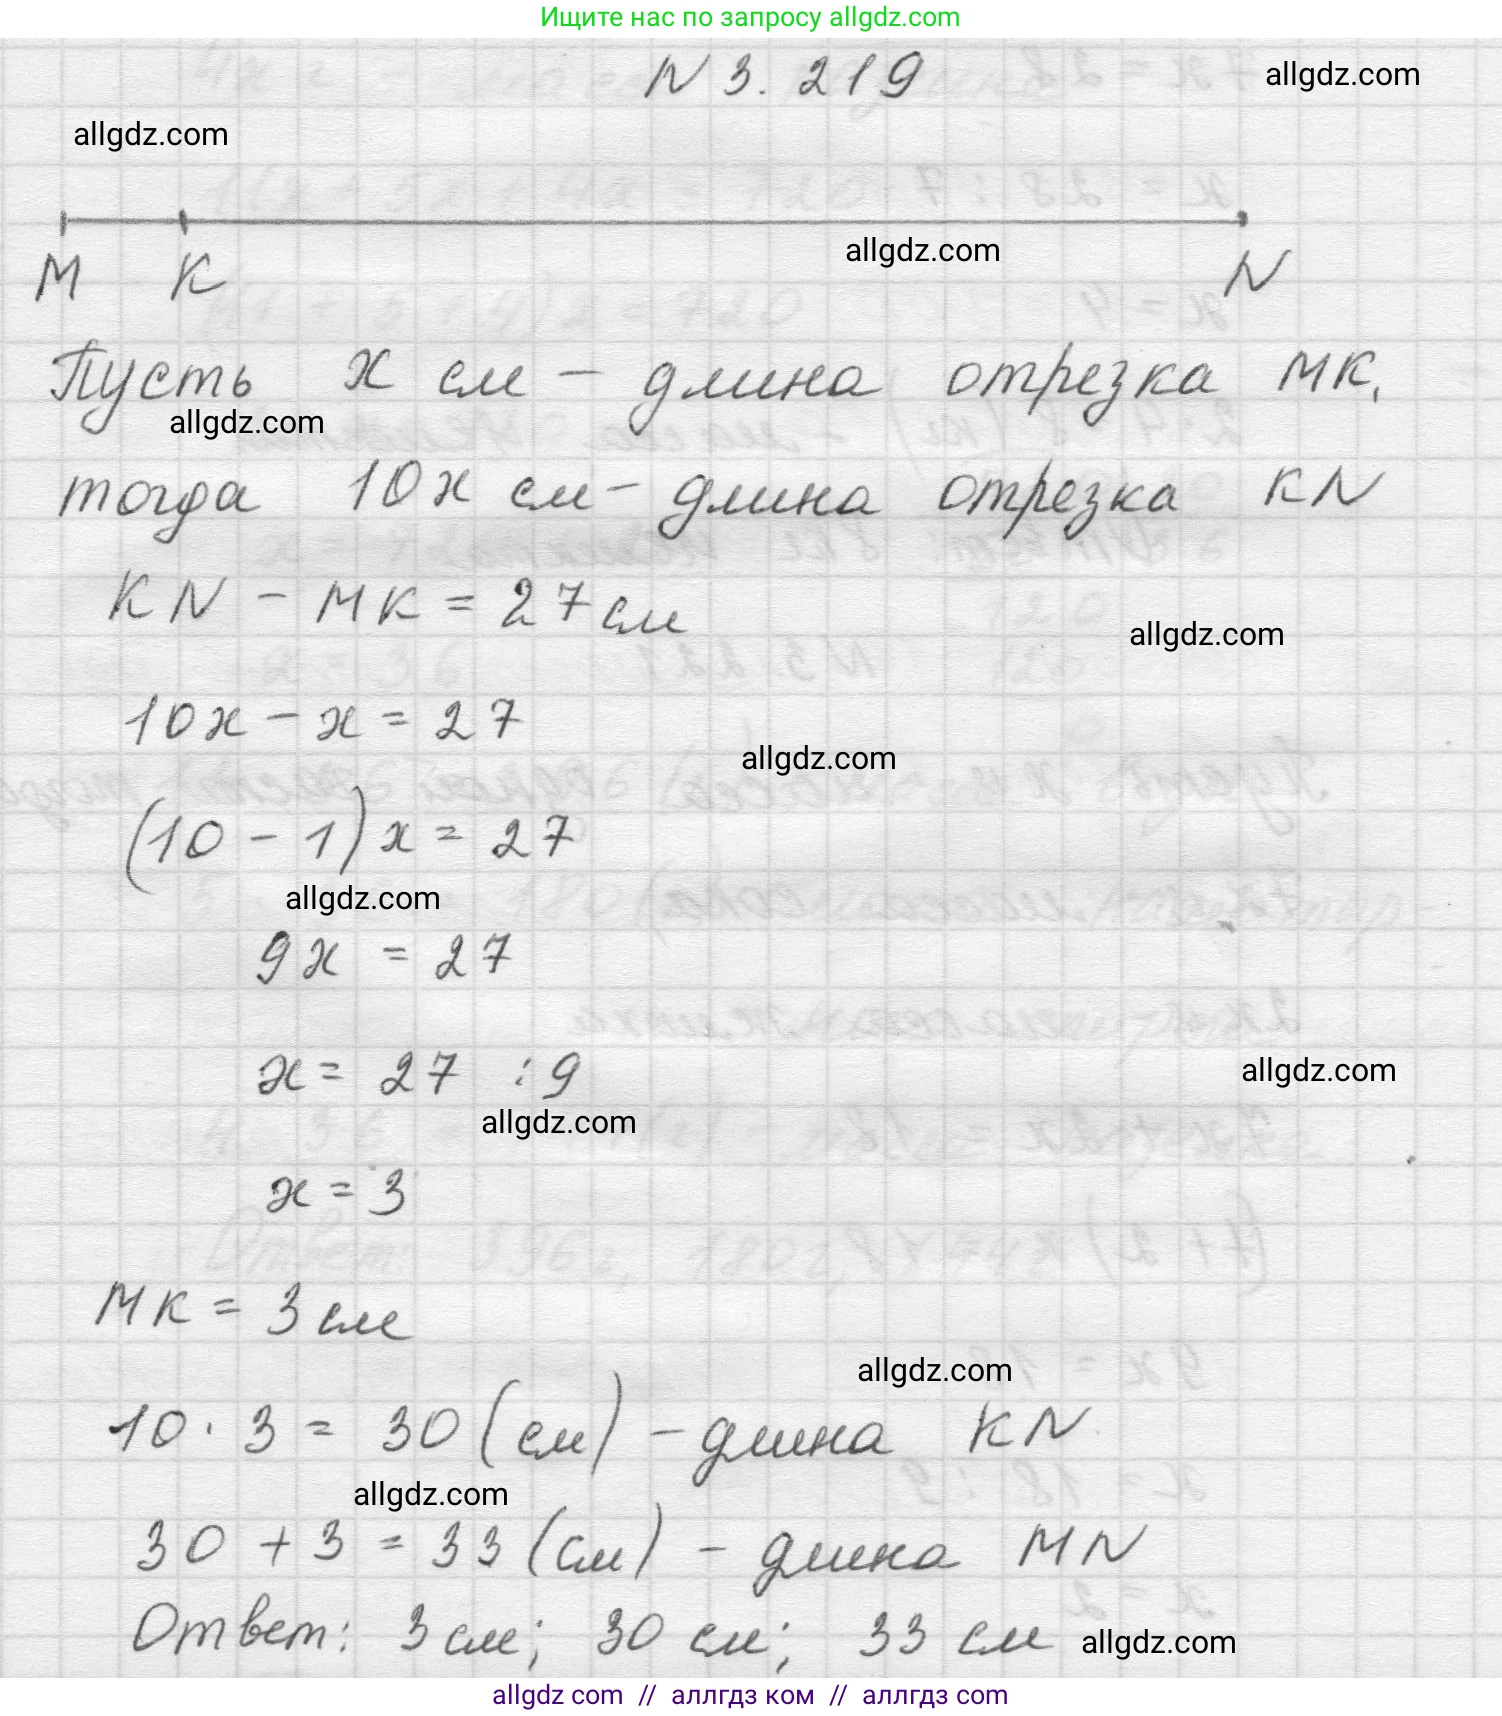 Ищите нас по запросу allgdz.com
N 3. 219
allgdz.com
allgdz.com
allgdz.com
M K N
Пусть x см - длина отрезка MK,
allgdz.com
тогда 10x см - длина отрезка KN
KN - MK = 27 см
allgdz.com
10x - x = 27
allgdz.com
(10 - 1) x = 27
allgdz.com
9x = 27
x = 27 : 9
allgdz.com
allgdz.com
x = 3
MK = 3 см
allgdz.com
10 · 3 = 30 (см) - длина KN
allgdz.com
30 + 3 = 33 (см) - длина MN
Ответ: 3 см; 30 см; 33 см
allgdz.com
allgdz com // аллгдз ком // аллгдз com